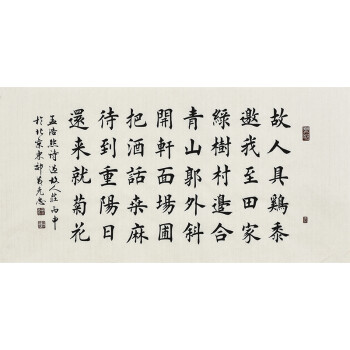 故人具鷄黍
邀我至田家
綠樹村邊合
青山郭外斜
開軒面場圃
把酒話桒麻
待到重陽日
還来就菊花
孟浩然詩過故人莊丙申
於北京東郊